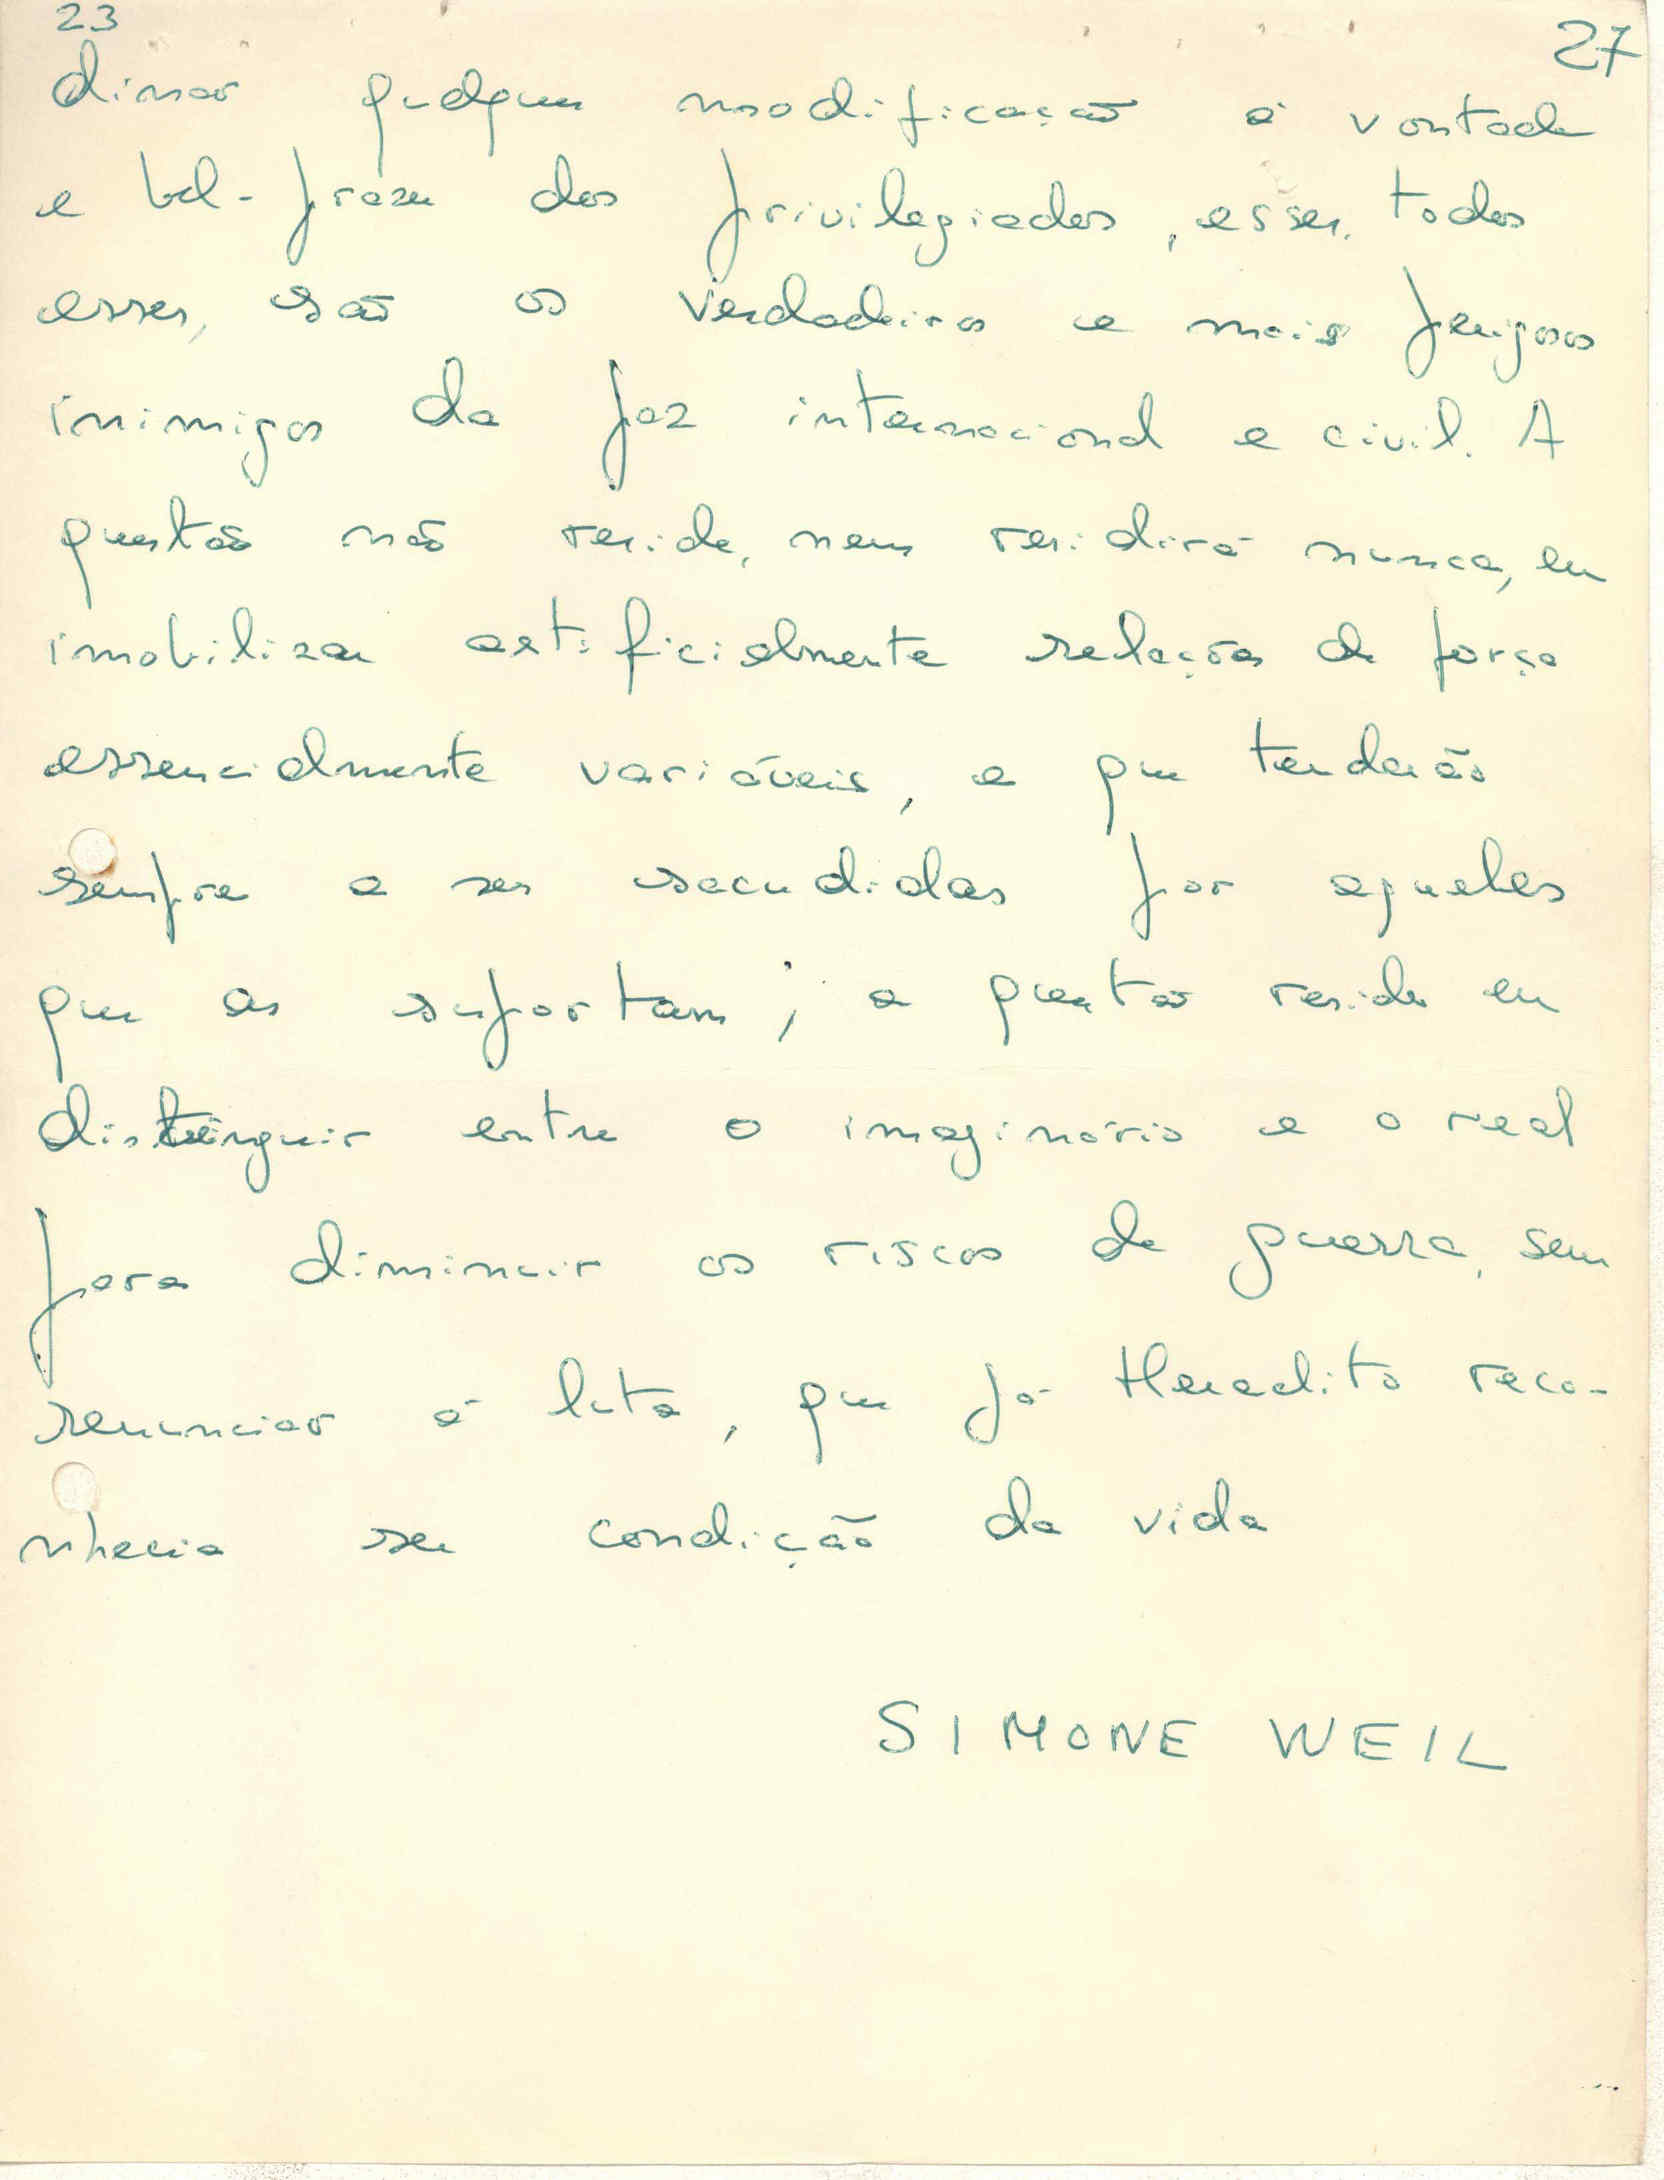 23 27
dinar qualquer modificação à vontade
e bel-prazer dos privilegiados, esses, todos
esses, são os verdadeiros e mais perigosos
inimigos da paz internacional e civil. A
questão não reside, nem residirá nunca, em
imobilizar artificialmente relações de força
essencialmente variáveis, e que tenderão
sempre a ser sacudidas por aqueles
que as suportam; a questão reside em
distinguir entre o imaginário e o real
para diminuir os riscos de guerra, sem
renunciar à luta, que já Heraclito reco-
nhecia ser condição da vida
SIMONE WEIL